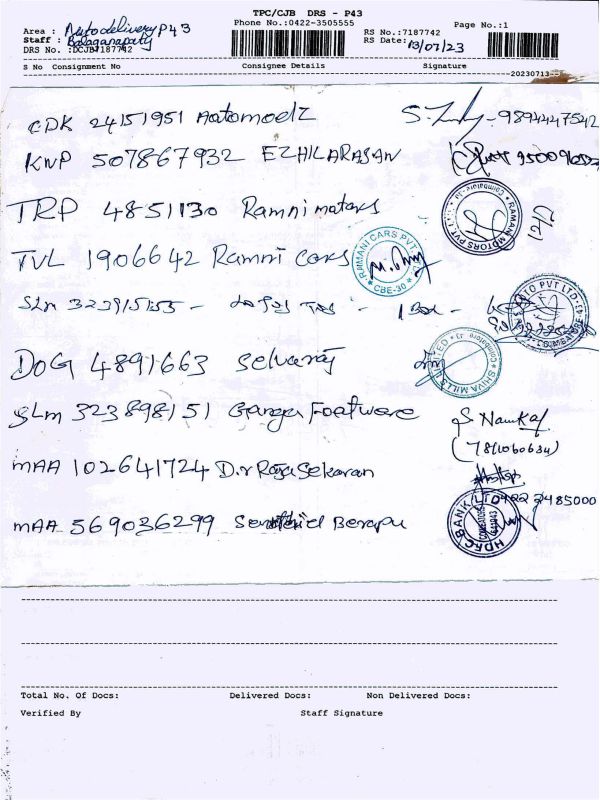 TPC/CJB DRS - P43
Phone No.:0422-3505555
Page No.:1
Area : Autodelivery P43
Staff :
DRS No. :DCJB7187742
RS No.:7187742
RS Date: 13/07/23
S No Consignment No Consignee Details Signature
20230713
CDK 24151951 Automodz -9894447542
KNP 507867932 EZHILARASAN
TRP 4851130 Ramni motors
RAMANI MOTORS PVT. LTD. Coimbatore
TVL 1906642 Ramni Cars
RAMANI CARS PVT. LTD. CBE-30
SLM - 1 Box -
AUTO PVT LTD COIMBATORE
DOG 4891663 Selvaraj
SHIVA MILLS LIMITED Coimbatore
SLM 323898151 Ganga Footware
(7811060634)
MAA 102641724 D.r Rajasekaran
MAA 569036299
HDFC BANK LTD
0422 2485000
Total No. Of Docs: Delivered Docs: Non Delivered Docs:
Verified By Staff Signature